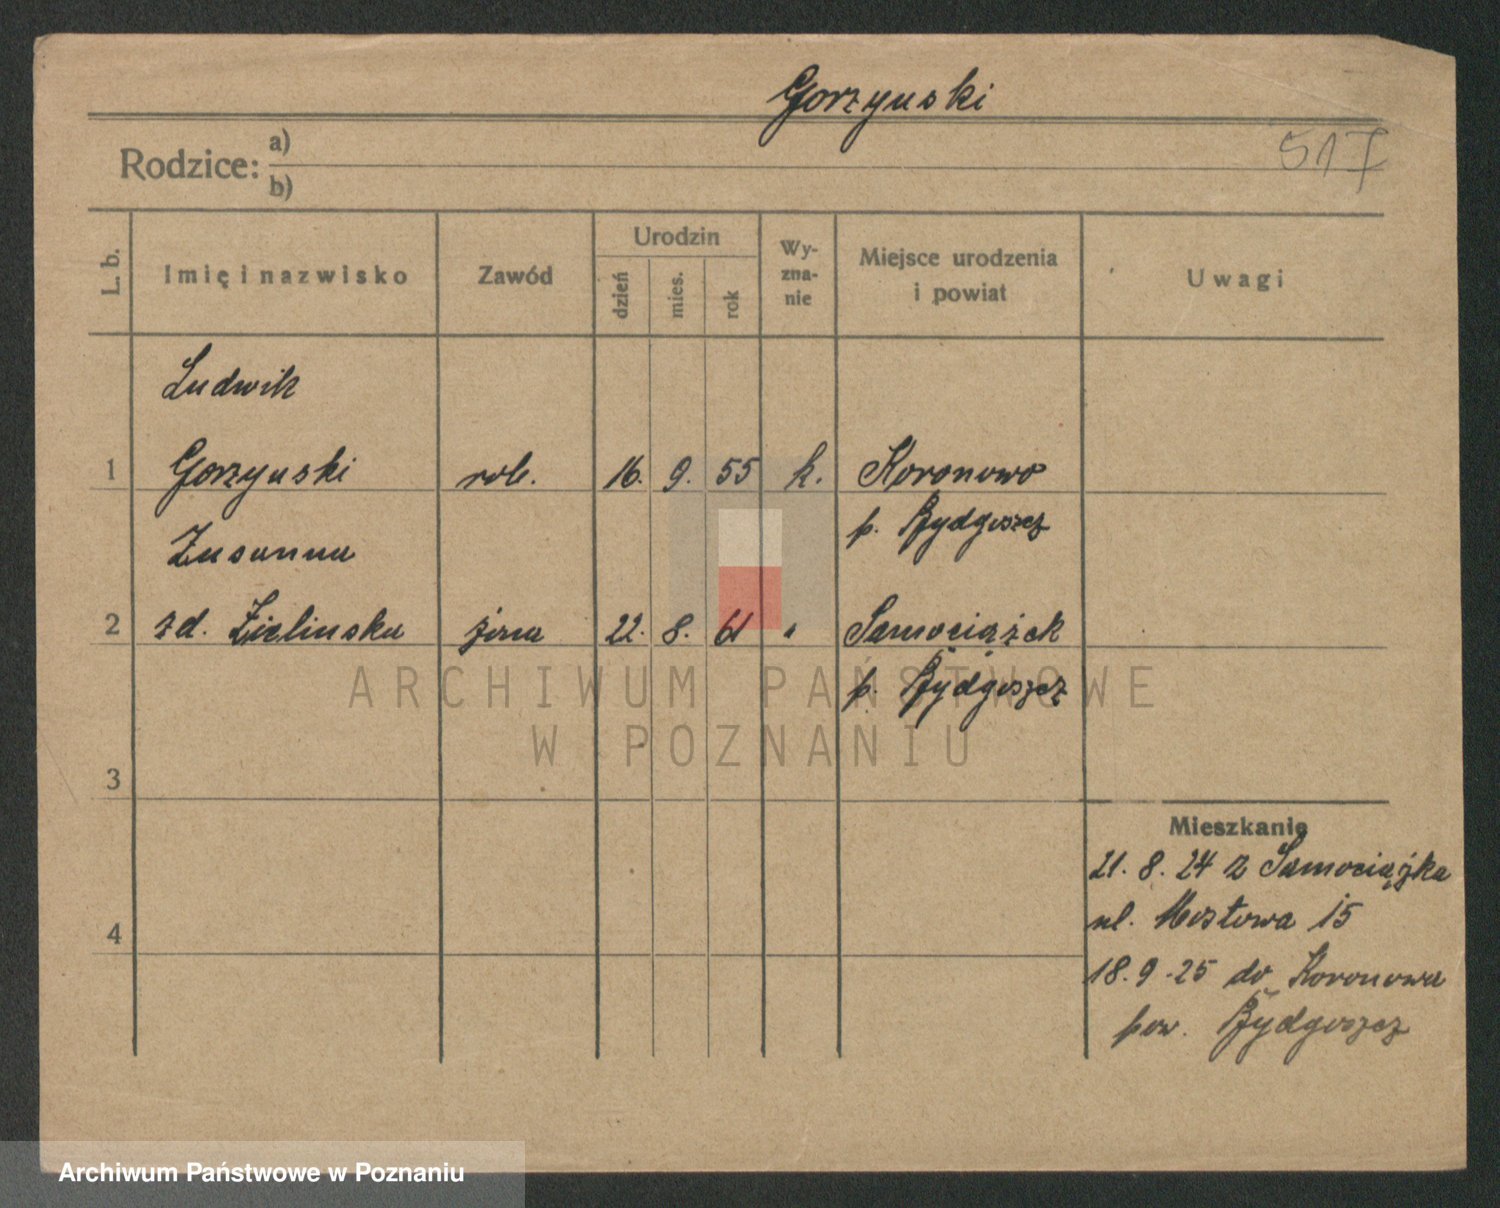 Gorzynski
517
Rodzice: a)
b)
L. b. Imię i nazwisko Zawód Urodzin dzień mies. rok Wy-zna-nie Miejsce urodzenia i powiat Uwagi
Ludwik
1 Gorzynski rob. 16. 9. 55 k. Koronowo
p. Bydgoszcz
Zusanna
2 zd. Zielinska żona 22. 8. 61 " Samociążek
p. Bydgoszcz
ARCHIWUM PAŃSTWOWE
W POZNANIU
3
Mieszkanie
21. 8. 24 z Samociążka
ul. Mostowa 15
4
18. 9. 25 do Koronowa
pow. Bydgoszcz
Archiwum Państwowe w Poznaniu